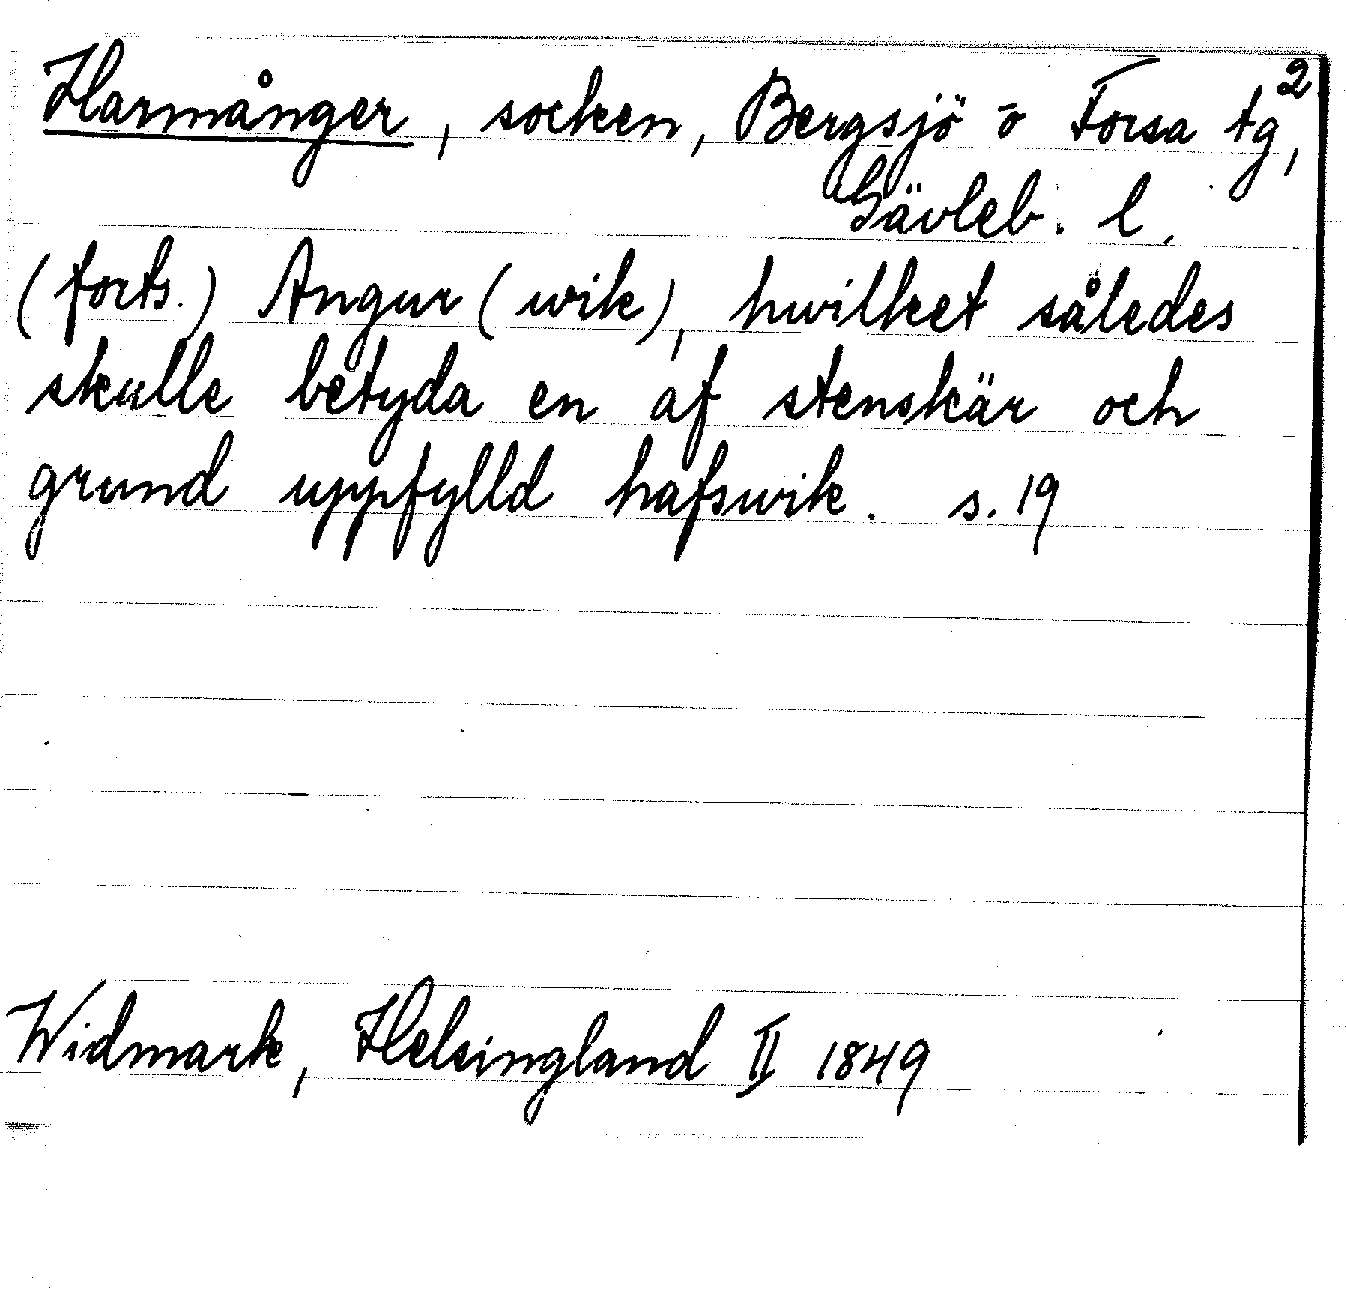 2
Harmånger, socken, Bergsjö o Forsa tg,
Gävleb. l.
(forts.) Angur (wik), hwilket således
skulle betyda en af stenskär och
grund uppfylld hafswik. s. 19
Widmark, Helsingland II 1849